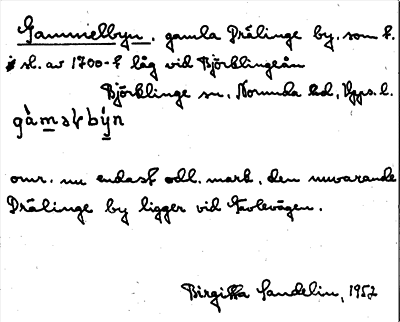 Gammelbyn. gamla Drälinge by. som t.
i sl. av 1700-t låg vid Björklingeån
Björklinge sn, Norunda hd, Upps. l.
gàmaƚbýn
omr. nu endast odl. mark, den nuvarande
Drälinge by ligger vid Gävlevägen.
Birgitta Sandelin, 1952